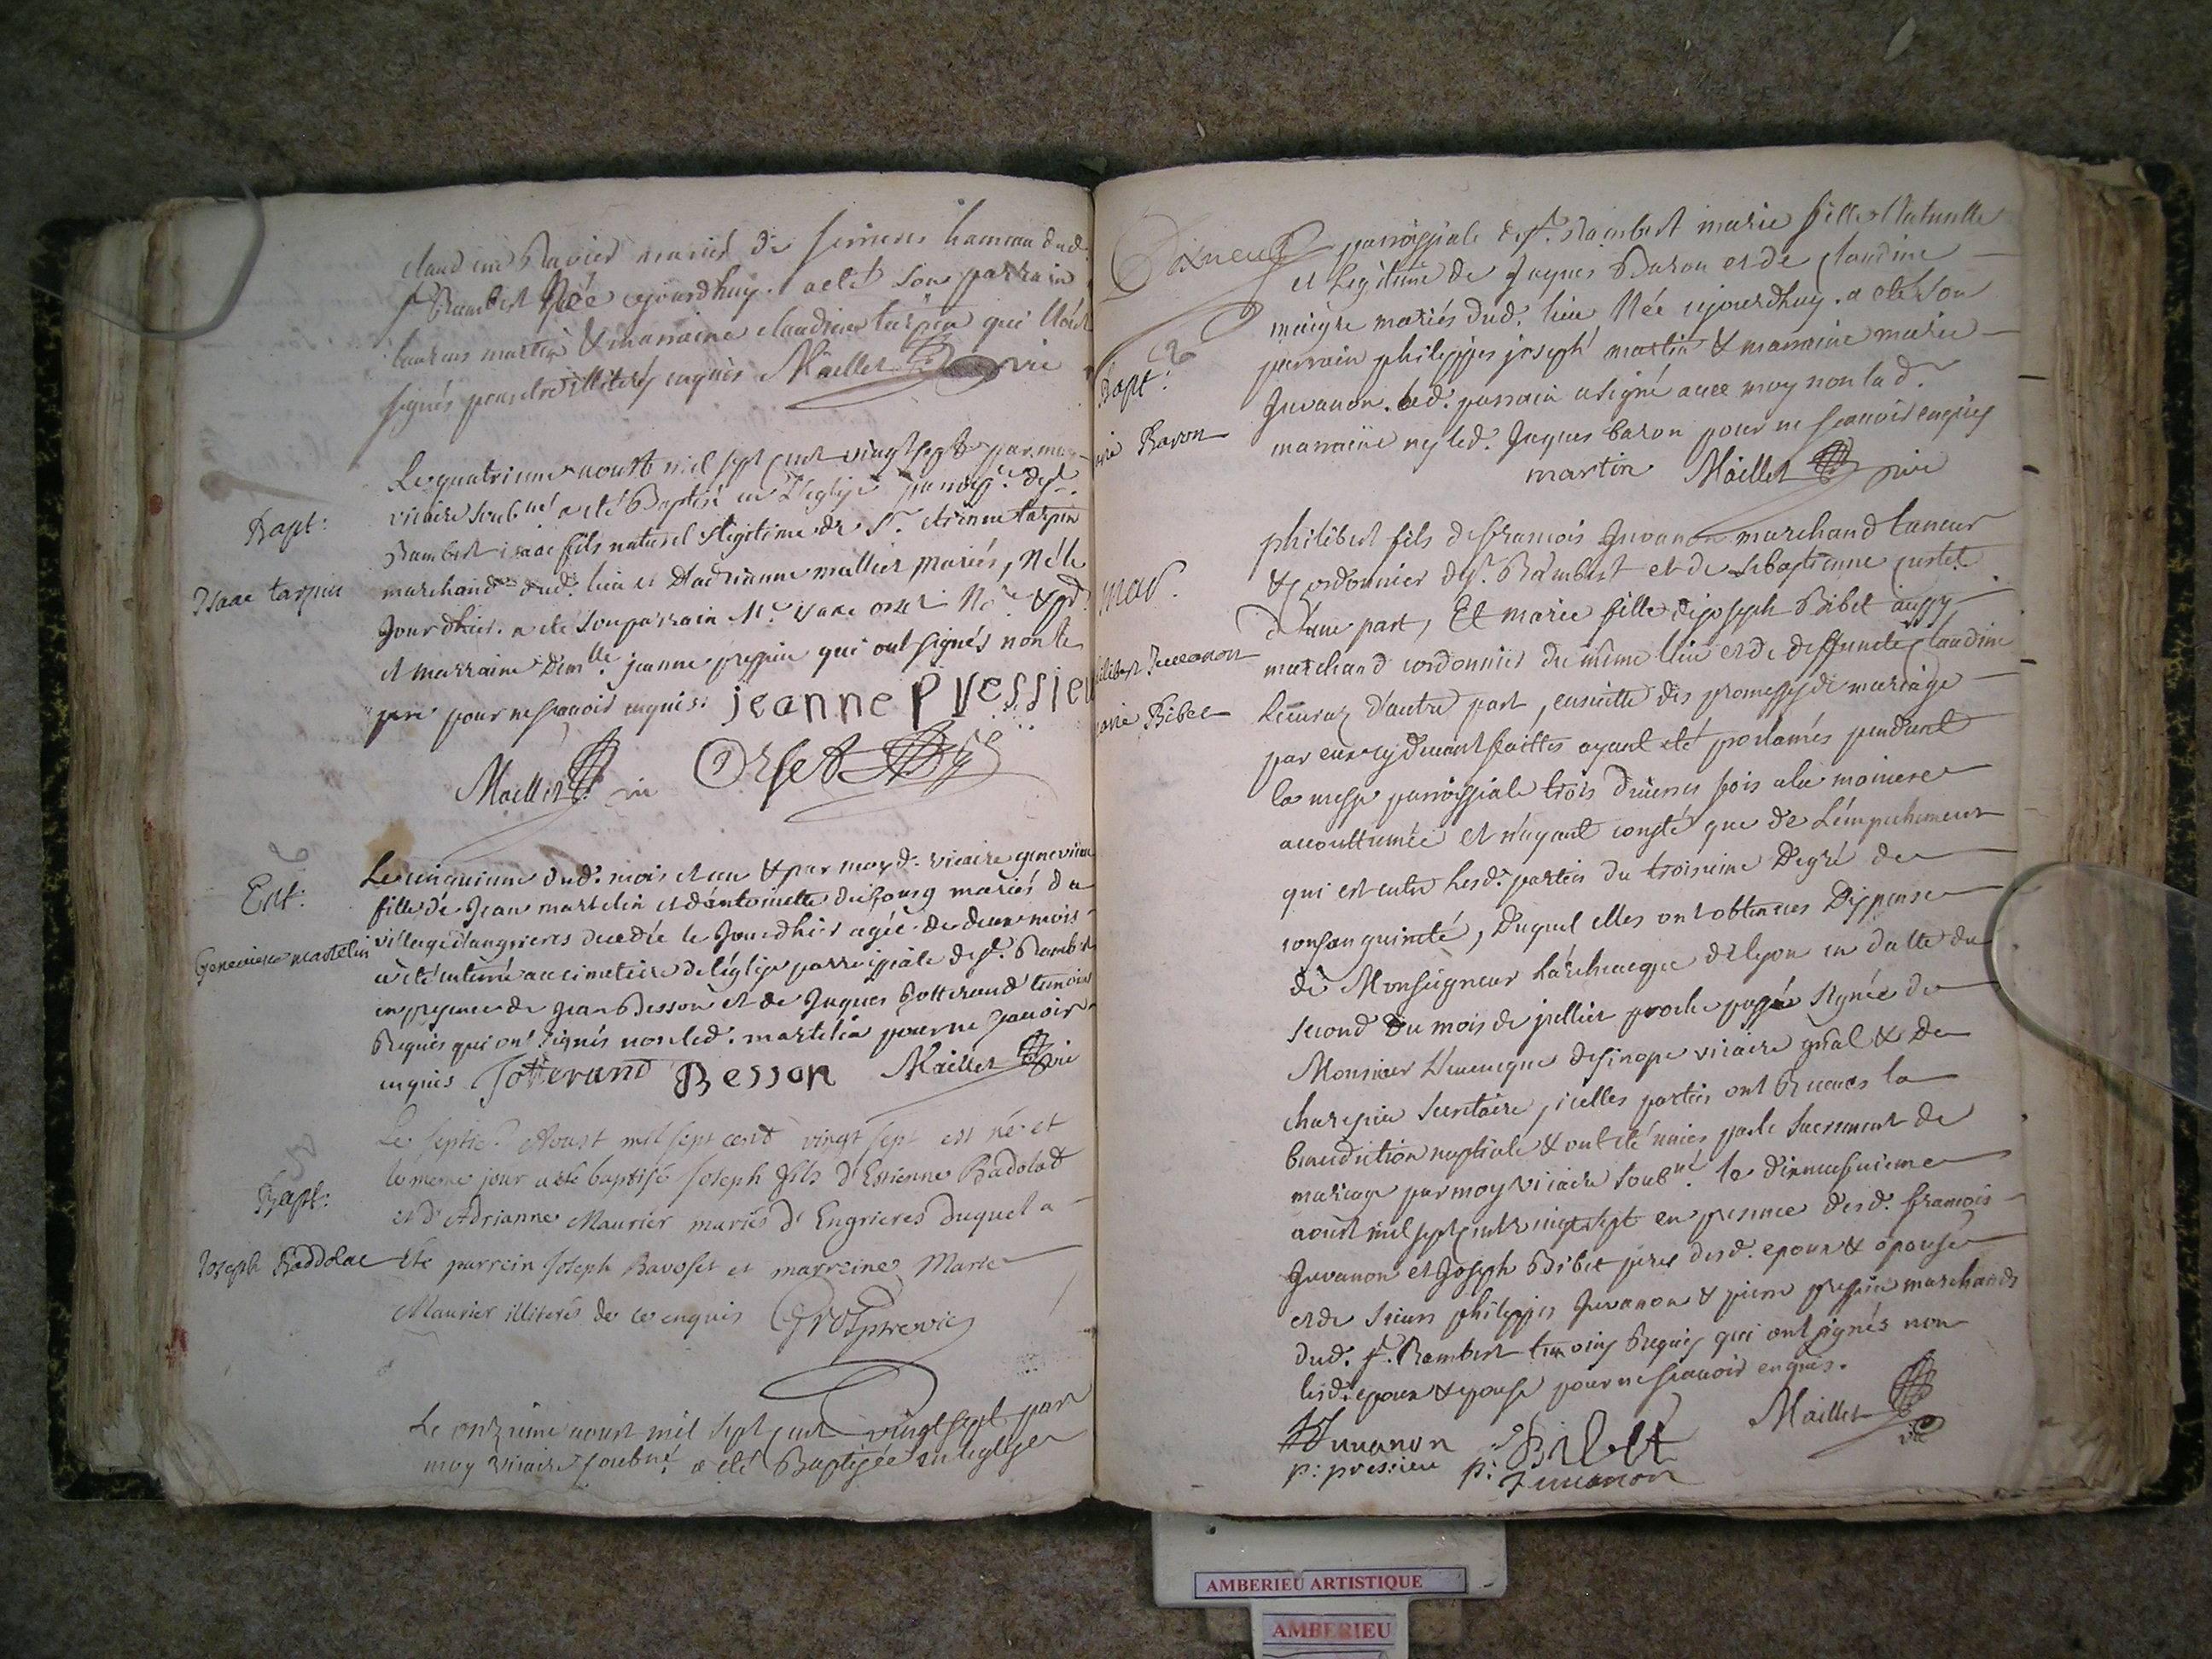 claudine Ravier mariés de serrieres hameau dud.
St Rambert Née cejourdhuy. a eté son parrain
laurens martin & marraine claudine tarpin qui n'ont
signés pour etre illiterés enquis Maillet vic
Bapt:
Isaac tarpin
Le quatrieme aoust mil sept cent vingt sept par moy
vicaire soub.né a eté Baptisé en l'eglise parroiss.e de St.
Rambert isaac fils naturel & legitime de Sr. etienne tarpin
marchand dud. lieu et d'adrianne mallier mariés, Né le
Jourdhier. a eté son parrain Me. isaac orset No.re &
et marraine Dem.lle jeanne pressieu qui ont signés non le
pere pour ne scavoir enquis. jeanne Pressieu
Maillet vic Orset
Ent:
Genevieve martelin
Le cinquieme dud. mois et an & par moy d. vicaire genevieve
fille de Jean martelin et d'antoinette dufourg mariés du
village d'angrieres decedée le Jourdhier agée de deux mois
a eté enterrée au cimetiere de l'église parroissiale de St. Rambert
en presence de Jean Besson et de Jaques Jotterand temoins
Requis qui ont signés non led. martelin pour ne scavoir
enquis Jotterand Besson Maillet vic
Bapt:
Joseph Baddolac
Le septie. Aoust mil sept cent vingt sept est né et
le meme jour a ete baptisé Joseph fils d'Estienne Badolad
et d'Adrianne Maurier mariés d'Engrieres duquel a
ete parrein Joseph Bavoset et marreine Marie
Maurier illiterés de ce enquis
Le onzieme aoust mil sept cent vingt sept par
moy vicaire soubné. a eté Baptisée en l'eglise
Dixneuf parroissiale de St. Rambert marie fille Naturelle
et legitime de Jaques Baron et de claudine
maigre mariés dud. lieu Née cejourdhuy. a eté son
parrain philippes joseph martin & marraine marie
Juvanon. led. parrain a signé avec moy non lad.
marraine ny led. Jaques baron pour ne scavoir enquis
martin Maillet vic
Bapt:
Baron
mar.
Juvanon
Bibet
philibert fils de francois Juvanon marchand taneur
& cordonnier de St. Rambert et de sebastienne curtet
d'une part, Et marie fille de joseph Bibet aussy
marchand cordonnier du même lieu et de deffuncte claudine
d'autre part, ensuitte des promesses de mariage
par eux cy devant faittes ayant eté proclamés pendant
la messe parroissiale trois diverses fois a la maniere
accouttumée et n'ayant consté que de L'empechement
qui est entre lesd. parties du troisieme Degré de
consanguinité, Duquel elles ont obtenues Dispense
de Monseigneur L'archeveque de lyon en datte du
second du mois de juillet proche passé signée de
Monsieur L'eveque de sinope vicaire gñal & de
charepieu secretaire, icelles parties ont Receues la
benediction nuptiale & ont eté unies par le sacrement de
mariage par moy vicaire soub.né. le dixneufvieme
aoust mil sept cent vingt sept en presence desd. francois
Juvanon et Joseph Bibet peres desd. epoux & epouse
et de sieurs philippes Juvanon & pierre pressieu marchands
dud. St. Rambert temoins Requis qui ont signés non
lesd. epoux & epouse pour ne scavoir enquis.
Juvanon Bibet Maillet vic
p: pressieu p: Juvanon
AMBERIEU ARTISTIQUE
AMBERIEU